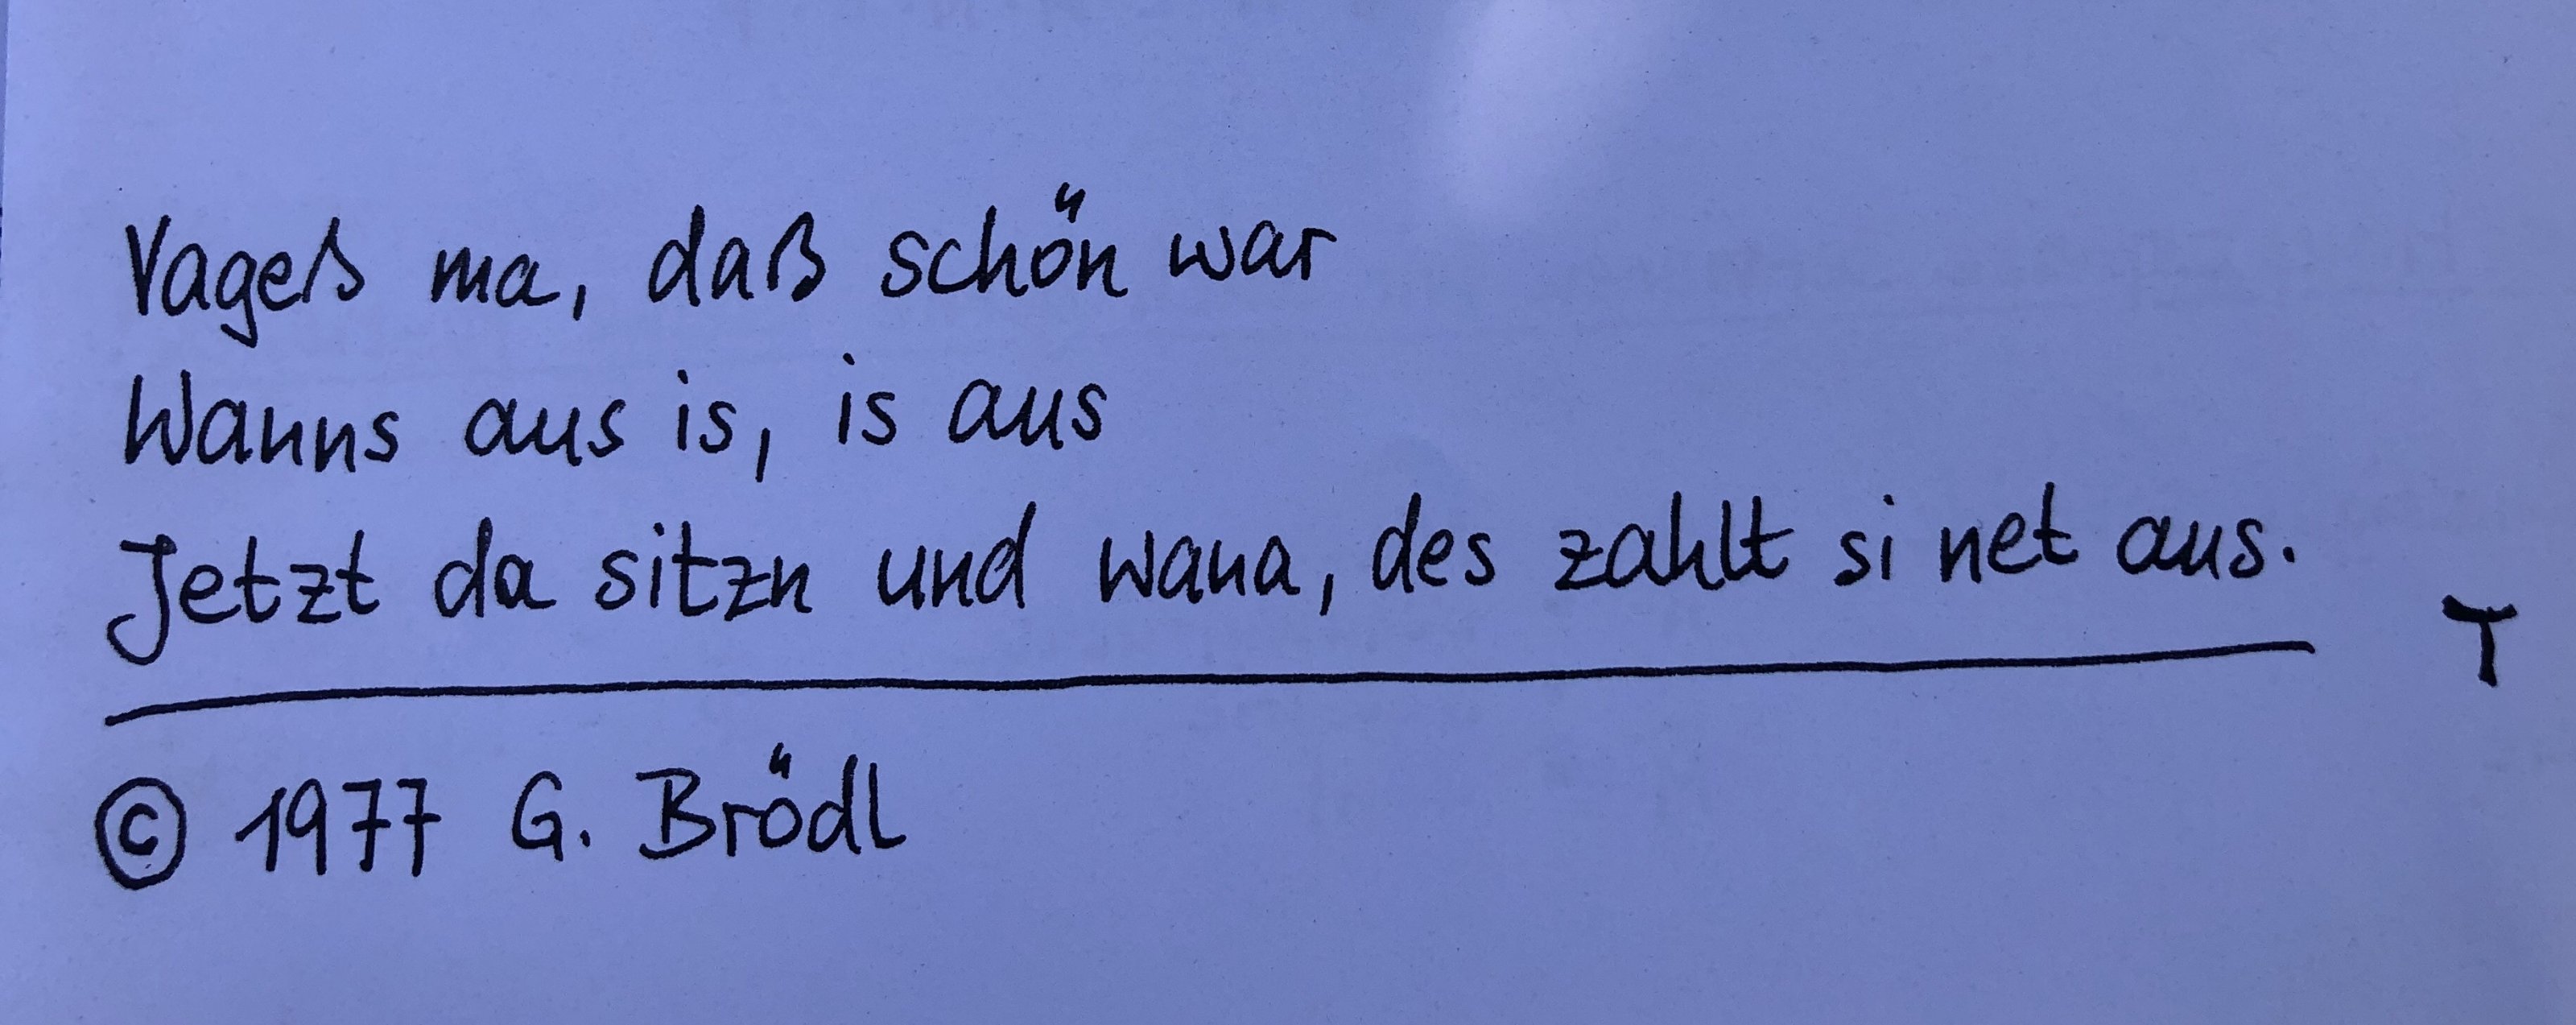 Vageß ma, daß schön war
Wanns aus is, is aus
Jetzt da sitzn und wana, des zahlt si net aus.
T
© 1977 G. Brödl